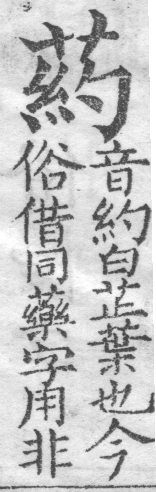 葯
音約白芷葉也今
俗借同藥字用非